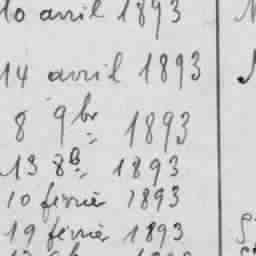 10 avril 1893
14 avril 1893
8 9br 1893
13 8B 1893
10 fevrier 1893
19 fevrier 1893